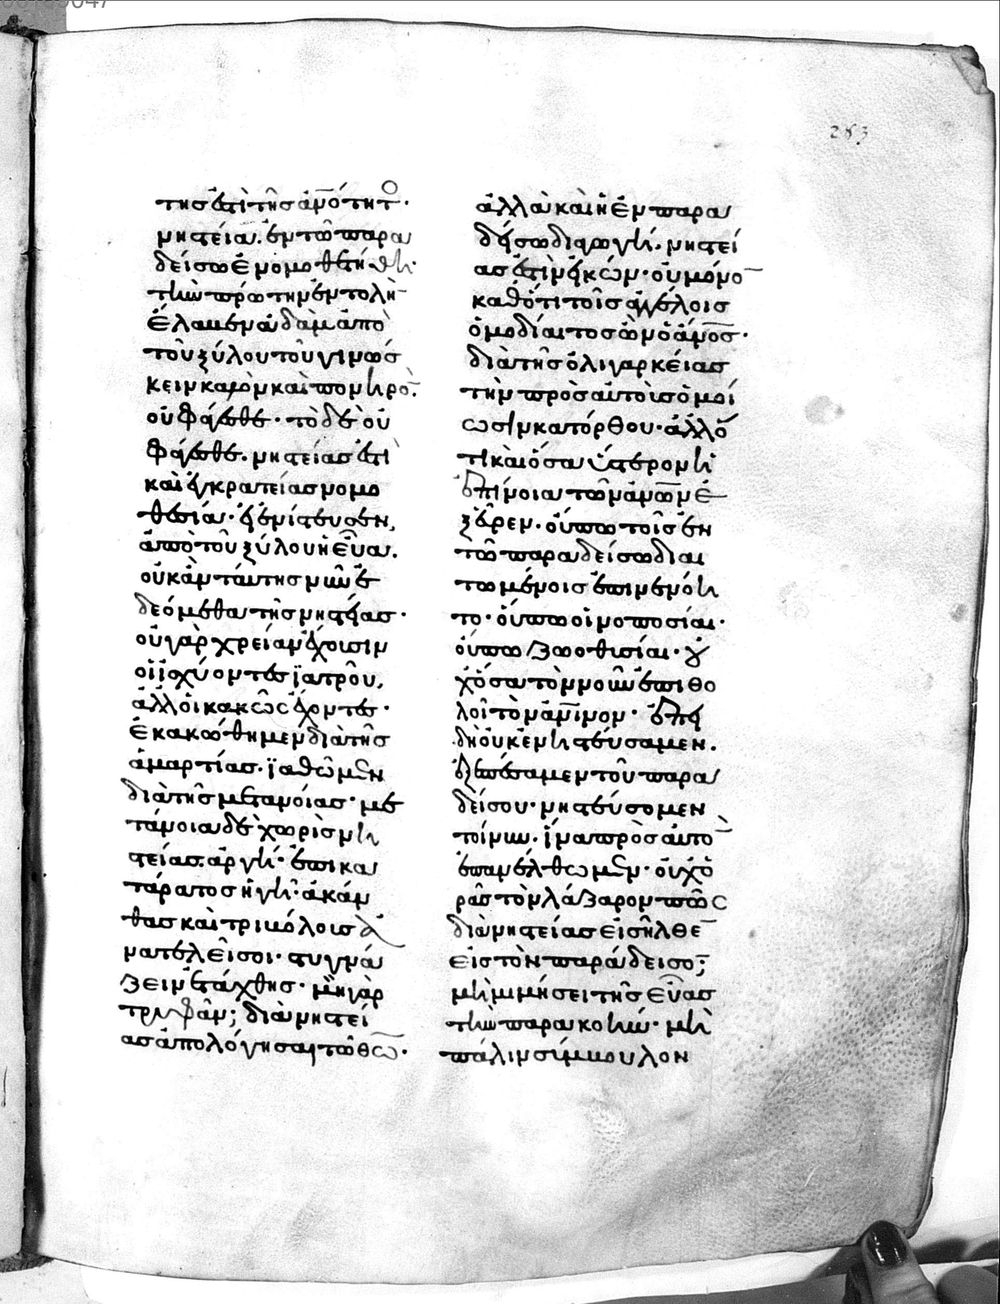 283
της ἐστὶ τῆς ἀν̅ότητο·
νηστεία. ἐν τῶ παρα
δείσω ἐνομοθετήθη·
τὴν πρώτην ἐντολὴν
ἔλαβεν ἀδὰμ ἀπὸ
τοῦ ξύλου τοῦ γινώσ
κειν καλὸν καὶ πονηρὸ̅.
οὐ φάγεσθε· τὸ δὲ οὐ
φάγεσθε. νηστείας ἐστὶ
καὶ ἐγκρατείας νομο
θεσία· εἰ ἐνίστευσεν,
ἀπὸ τοῦ ξύλου ἡ εὔα.
οὐκ ἂν ταύτης νῦν ἐ
δεόμεθα τῆς νηστείας·
οὐ γὰρ χρείαν ἔχουσιν
οἱ ἰσχύοντες ἰατροῦ,
ἀλλ' οἱ κακῶς ἔχοντες·
ἐκακώθημεν διὰ τῆς
ἁμαρτίας. ἰαθῶμεν
διὰ τῆς μετανοίας· με
τάνοια δὲ χωρὶς νη
στείας. ἀργή· ἐπικα
τάρατος ἡ γῆ· ἀκάν
θας καὶ τριβόλους ἀ
νατελεῖ σοι· στυγνά
ζειν ἐτάχθης· μὴ γὰρ
τρυφᾶν; διὰ νηστεί
ας ἀπολόγησαι τῶ θ̅ω̅·
ἀλλὰ καὶ ἡ ἐν παρα
δείσω διαγωγή. νηστεί
ας ἐστὶν εἰκών· οὐ μόνο̅
καθότι τοῖς ἀγγέλοις
ὁμοδίαιτος ὢν ὁ ἄν̅ο̅ς̅·
διὰ τῆς ὀλιγαρκείας
τὴν πρὸς αὐτοὺς ὁμοί
ωσιν κατόρθου· ἀλλ' ὅ
τι καὶ ὅσα ὕστερον ἡ
ἐπίνοια τῶν ἀν̅ω̅ν ἐ
ξεῦρεν. οὔπω τοῖς ἐν
τῶ παραδείσω διαι
τωμένοις ἐπινενόη
το· οὔπω οἰνοποσίαι·
οὔπω ζωοθυσίαι· οὐ
χ' ὅσα τὸν νοῦν ἐπιθο
λοῖ τὸν ἀν̅ινον· ἐπεὶ
δὴ οὐκ ἐνηστεύσαμεν.
ἐξεπέσαμεν τοῦ παρα
δείσου· νηστεύσομεν
τοίνυν. ἵνα πρὸς αὐτὸ̅
ἐπανέλθωμεν· οὐχ ὁ
ρᾶς τὸν λάζαρον πῶς
διὰ νηστείας εἰσῆλθε̅
εἰς τὸν παράδεισο̅;
μὴ μιμήσει τῆς εὔας
τὴν παρακοήν· μὴ
πάλιν σύμβουλον